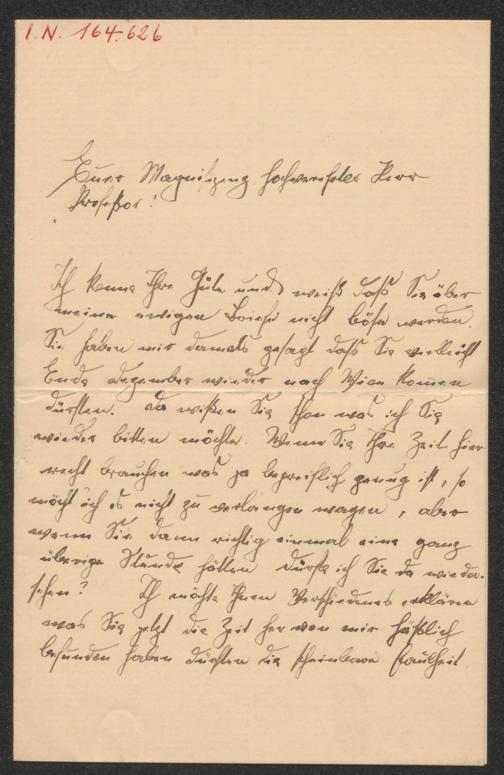 I.N. 164.626
Euer Magnifizenz hochverehrter Herr
Professor!
Ich kenne Ihre Güte und weiß daß Sie über
meine ewigen Briefe nicht böse werden.
Sie haben mir damals gesagt daß Sie vielleicht
Ende Dezember wieder nach Wien kommen
dürften. Da wißen Sie schon was ich Sie
wieder bitten möchte. Wenn Sie Ihre Zeit hier
recht brauchen was ja begreiflich genug ist, so
möcht ich es nicht zu verlangen wagen, aber
wenn Sie dann richtig einmal eine ganz
übrige Stunde hätten dürfte ich Sie da wieder
sehen? Ich möchte Ihnen Verschiedenes erklären
was Sie jetzt die Zeit her von mir häßlich
befunden haben dürften die scheinbare Faulheit